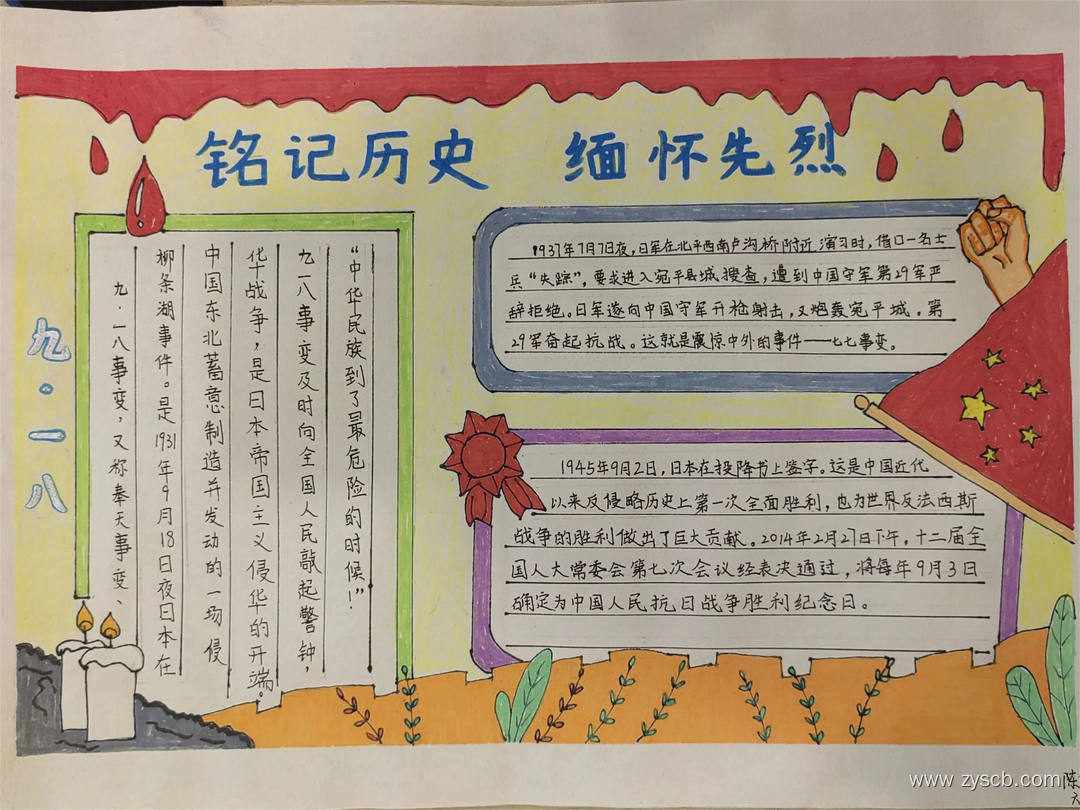 铭记历史 缅怀先烈
九·一八
九·一八事变，又称奉天事变、
柳条湖事件。是1931年9月18日夜日本在
中国东北蓄意制造并发动的一场侵
华战争，是日本帝国主义侵华的开端。
九一八事变及时向全国人民敲起警钟，
“中华民族到了最危险的时候！”
1937年7月7日夜，日军在北平西南卢沟桥附近演习时，借口一名士
兵“失踪”，要求进入宛平县城搜查，遭到中国守军第29军严
辞拒绝。日军遂向中国守军开枪射击，又炮轰宛平城。第
29军奋起抗战。这就是震惊中外的事件——七七事变。
1945年9月2日，日本在投降书上签字。这是中国近代
以来反侵略历史上第一次全面胜利，也为世界反法西斯
战争的胜利做出了巨大贡献。2014年2月27日下午，十二届全
国人大常委会第七次会议经表决通过，将每年9月3日
确定为中国人民抗日战争胜利纪念日。
www.zyscb.com
陈